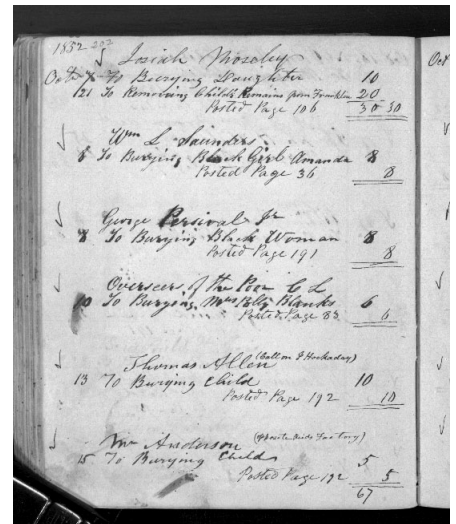 1852 202
Josiah Moseley
Oct 7 To Burying Daughter 10
21 To Removing Childs Remains from Franklin 20
Posted Page 106 30 30
Wm L. Saunders
8 To Burying Black Girl Amanda 8
Posted Page 36 8
George Percival Jr
8 To Burying Black Woman 8
Posted Page 191 8
Overseers of the Poor C L
10 To Burying Mrs Polly Blanks 6
Posted Page 83 6
Thomas Allen (Cotton & Hockaday)
13 To Burying Child 10
Posted Page 192 10
Anderson Factory)
15 To Burying Child 5
Posted Page 192 5
67
Oct